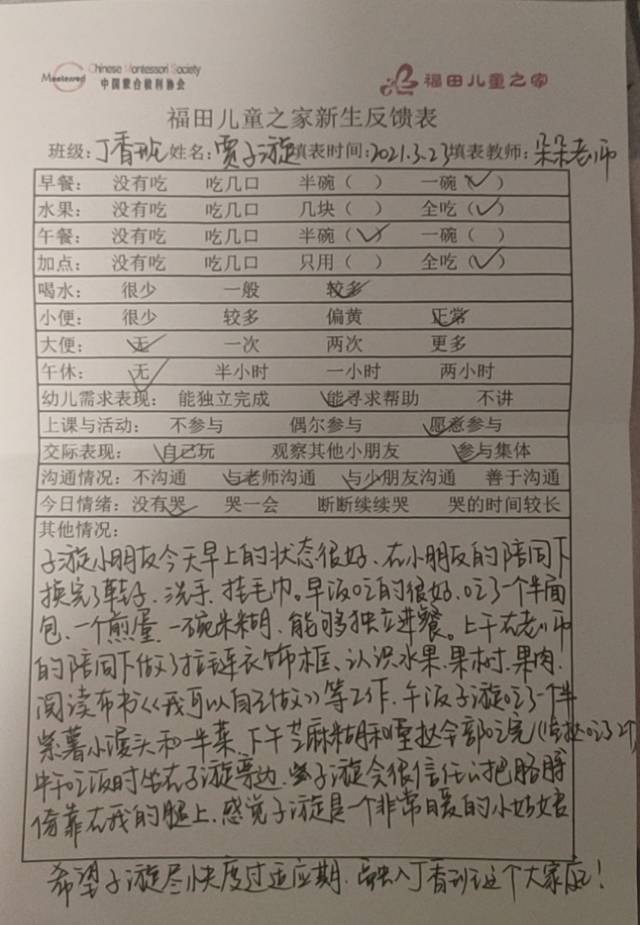 Chinese Montessori Society
中国蒙台梭利协会
福田儿童之家
福田儿童之家新生反馈表
班级：丁香班 姓名：贾子漩 填表时间：2021.3.23 填表教师：朵朵老师
早餐： 没有吃 吃几口 半碗（ ） 一碗（✓）
水果： 没有吃 吃几口 几块（ ） 全吃（✓）
午餐： 没有吃 吃几口 半碗（✓） 一碗（ ）
加点： 没有吃 吃几口 只用（ ） 全吃（✓）
喝水： 很少 一般 较多
小便： 很少 较多 偏黄 正常
大便： 无 一次 两次 更多
午休： 无 半小时 一小时 两小时
幼儿需求表现： 能独立完成 能寻求帮助 不讲
上课与活动： 不参与 偶尔参与 愿意参与
交际表现： 自己玩 观察其他小朋友 参与集体
沟通情况：不沟通 与老师沟通 与小朋友沟通 善于沟通
今日情绪：没有哭 哭一会 断断续续哭 哭的时间较长
其他情况：
子漩小朋友今天早上的状态很好、在小朋友的陪同下
换完了鞋子、洗手、挂毛巾。早饭吃的很好、吃了一个半面
包、一个煎蛋、一碗米糊、能够独立进餐。上午在老师
的陪同下做了拉链衣饰框、认识水果、果树、果肉、
阅读布书《我可以自己做》等工作、午饭子漩吃了一个半
紫薯小馒头和一半菜、下午芝麻糊和蛋挞全部吃完（蛋挞吃了2个
中午吃饭时坐在子漩旁边、子漩会很信任的把胳膊
倚靠在我的腿上、感觉子漩是一个非常暖的小姑娘
希望子漩尽快度过适应期、融入丁香班这个大家庭！